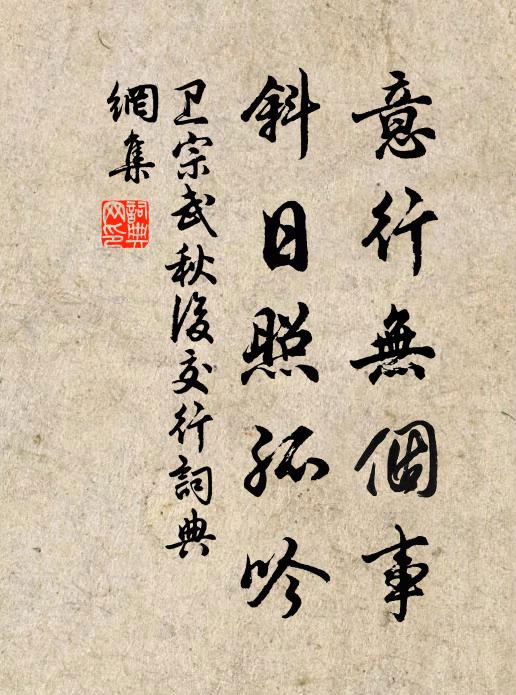 意行無個事
斜日照孤吟
卫宗武秋後交行詞典
網集
詞典
网印